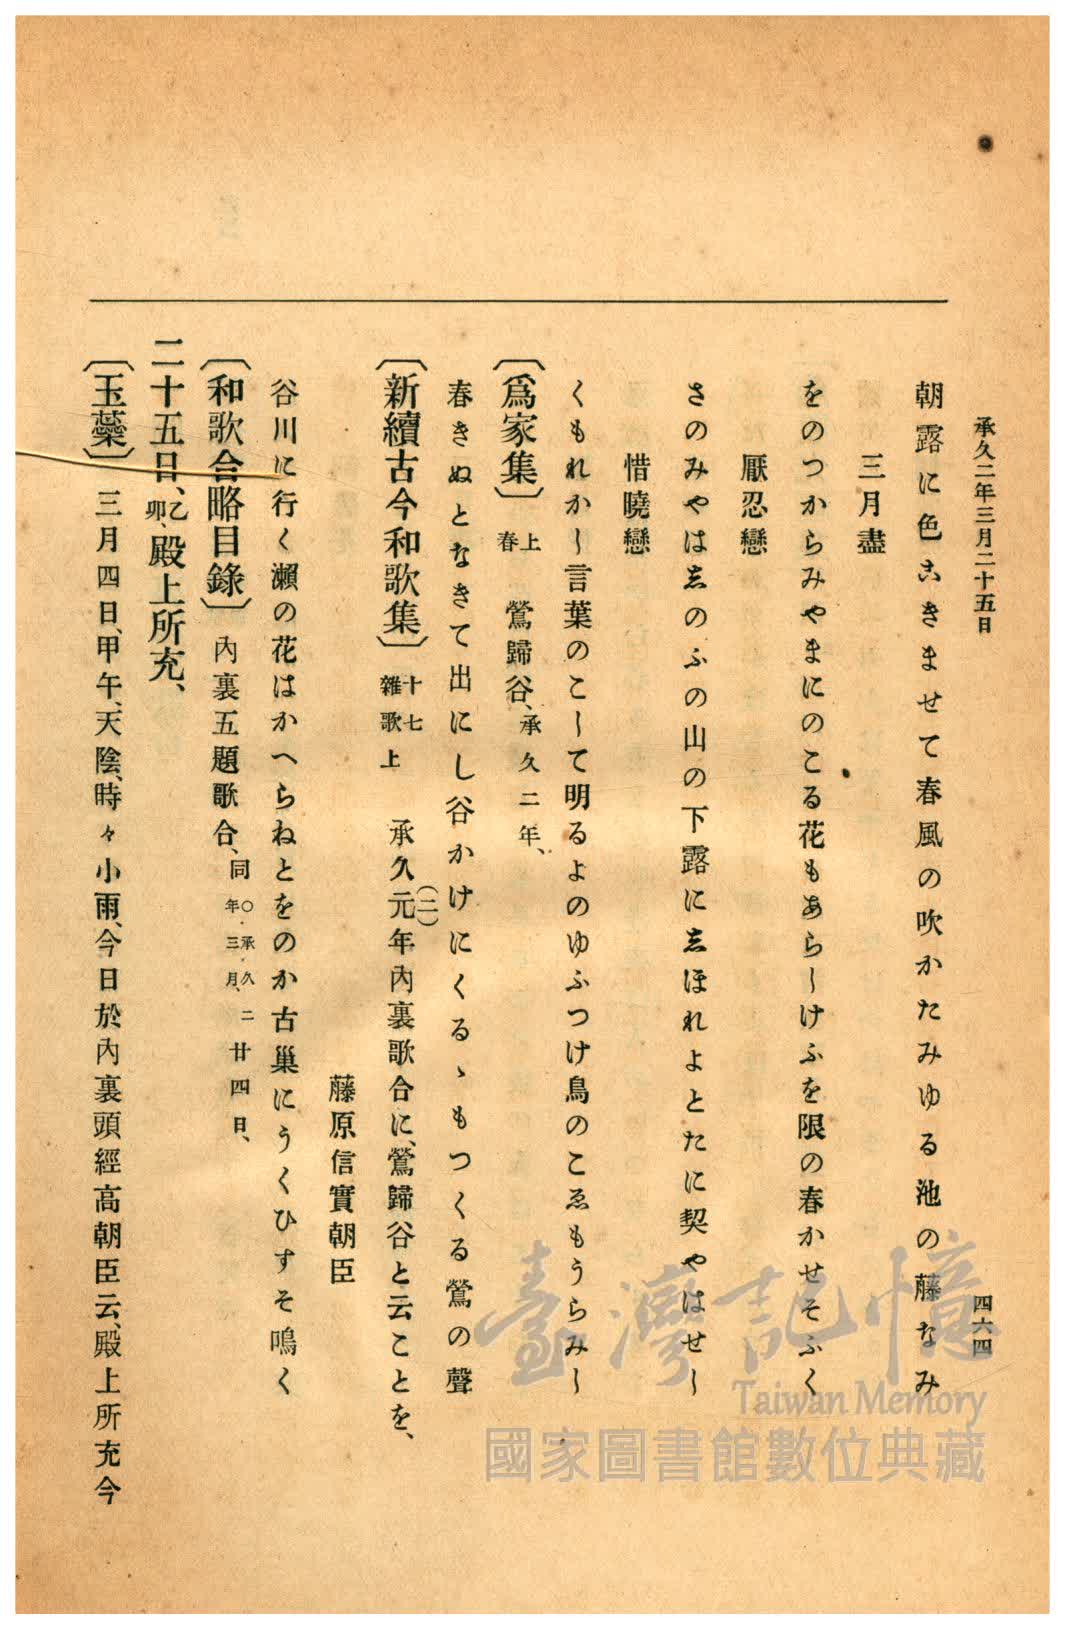 承久二年三月二十五日
四六四
朝露に色こきませて春風の吹かたみゆる池の藤なみ
三月盡
をのつからみやまにのこる花もあらしけふを限の春かせそふく
厭忍戀
さのみやは志のふの山の下露に志ほれよとたに契やはせし
惜曉戀
くもれかし言葉のこして明るよのゆふつけ鳥のこゑもうらみし
〔爲家集〕上春 鶯歸谷、承久二年、
春きぬとなきて出にし谷かけにくるゝもつくる鶯の聲
〔新續古今和歌集〕十七雜歌上 承久元(二)年內裏歌合に、鶯歸谷と云ことを、
藤原信實朝臣
谷川に行く瀨の花はかへらねとをのか古巢にうくひすそ鳴く
〔和歌合略目錄〕內裏五題歌合、同〇承久二年三月、廿四日、
二十五日、乙卯、殿上所充、
〔玉蘂〕三月四日、甲午、天陰、時々小雨、今日於內裏頭經高朝臣云、殿上所充今
臺灣記憶
Taiwan Memory
國家圖書館數位典藏